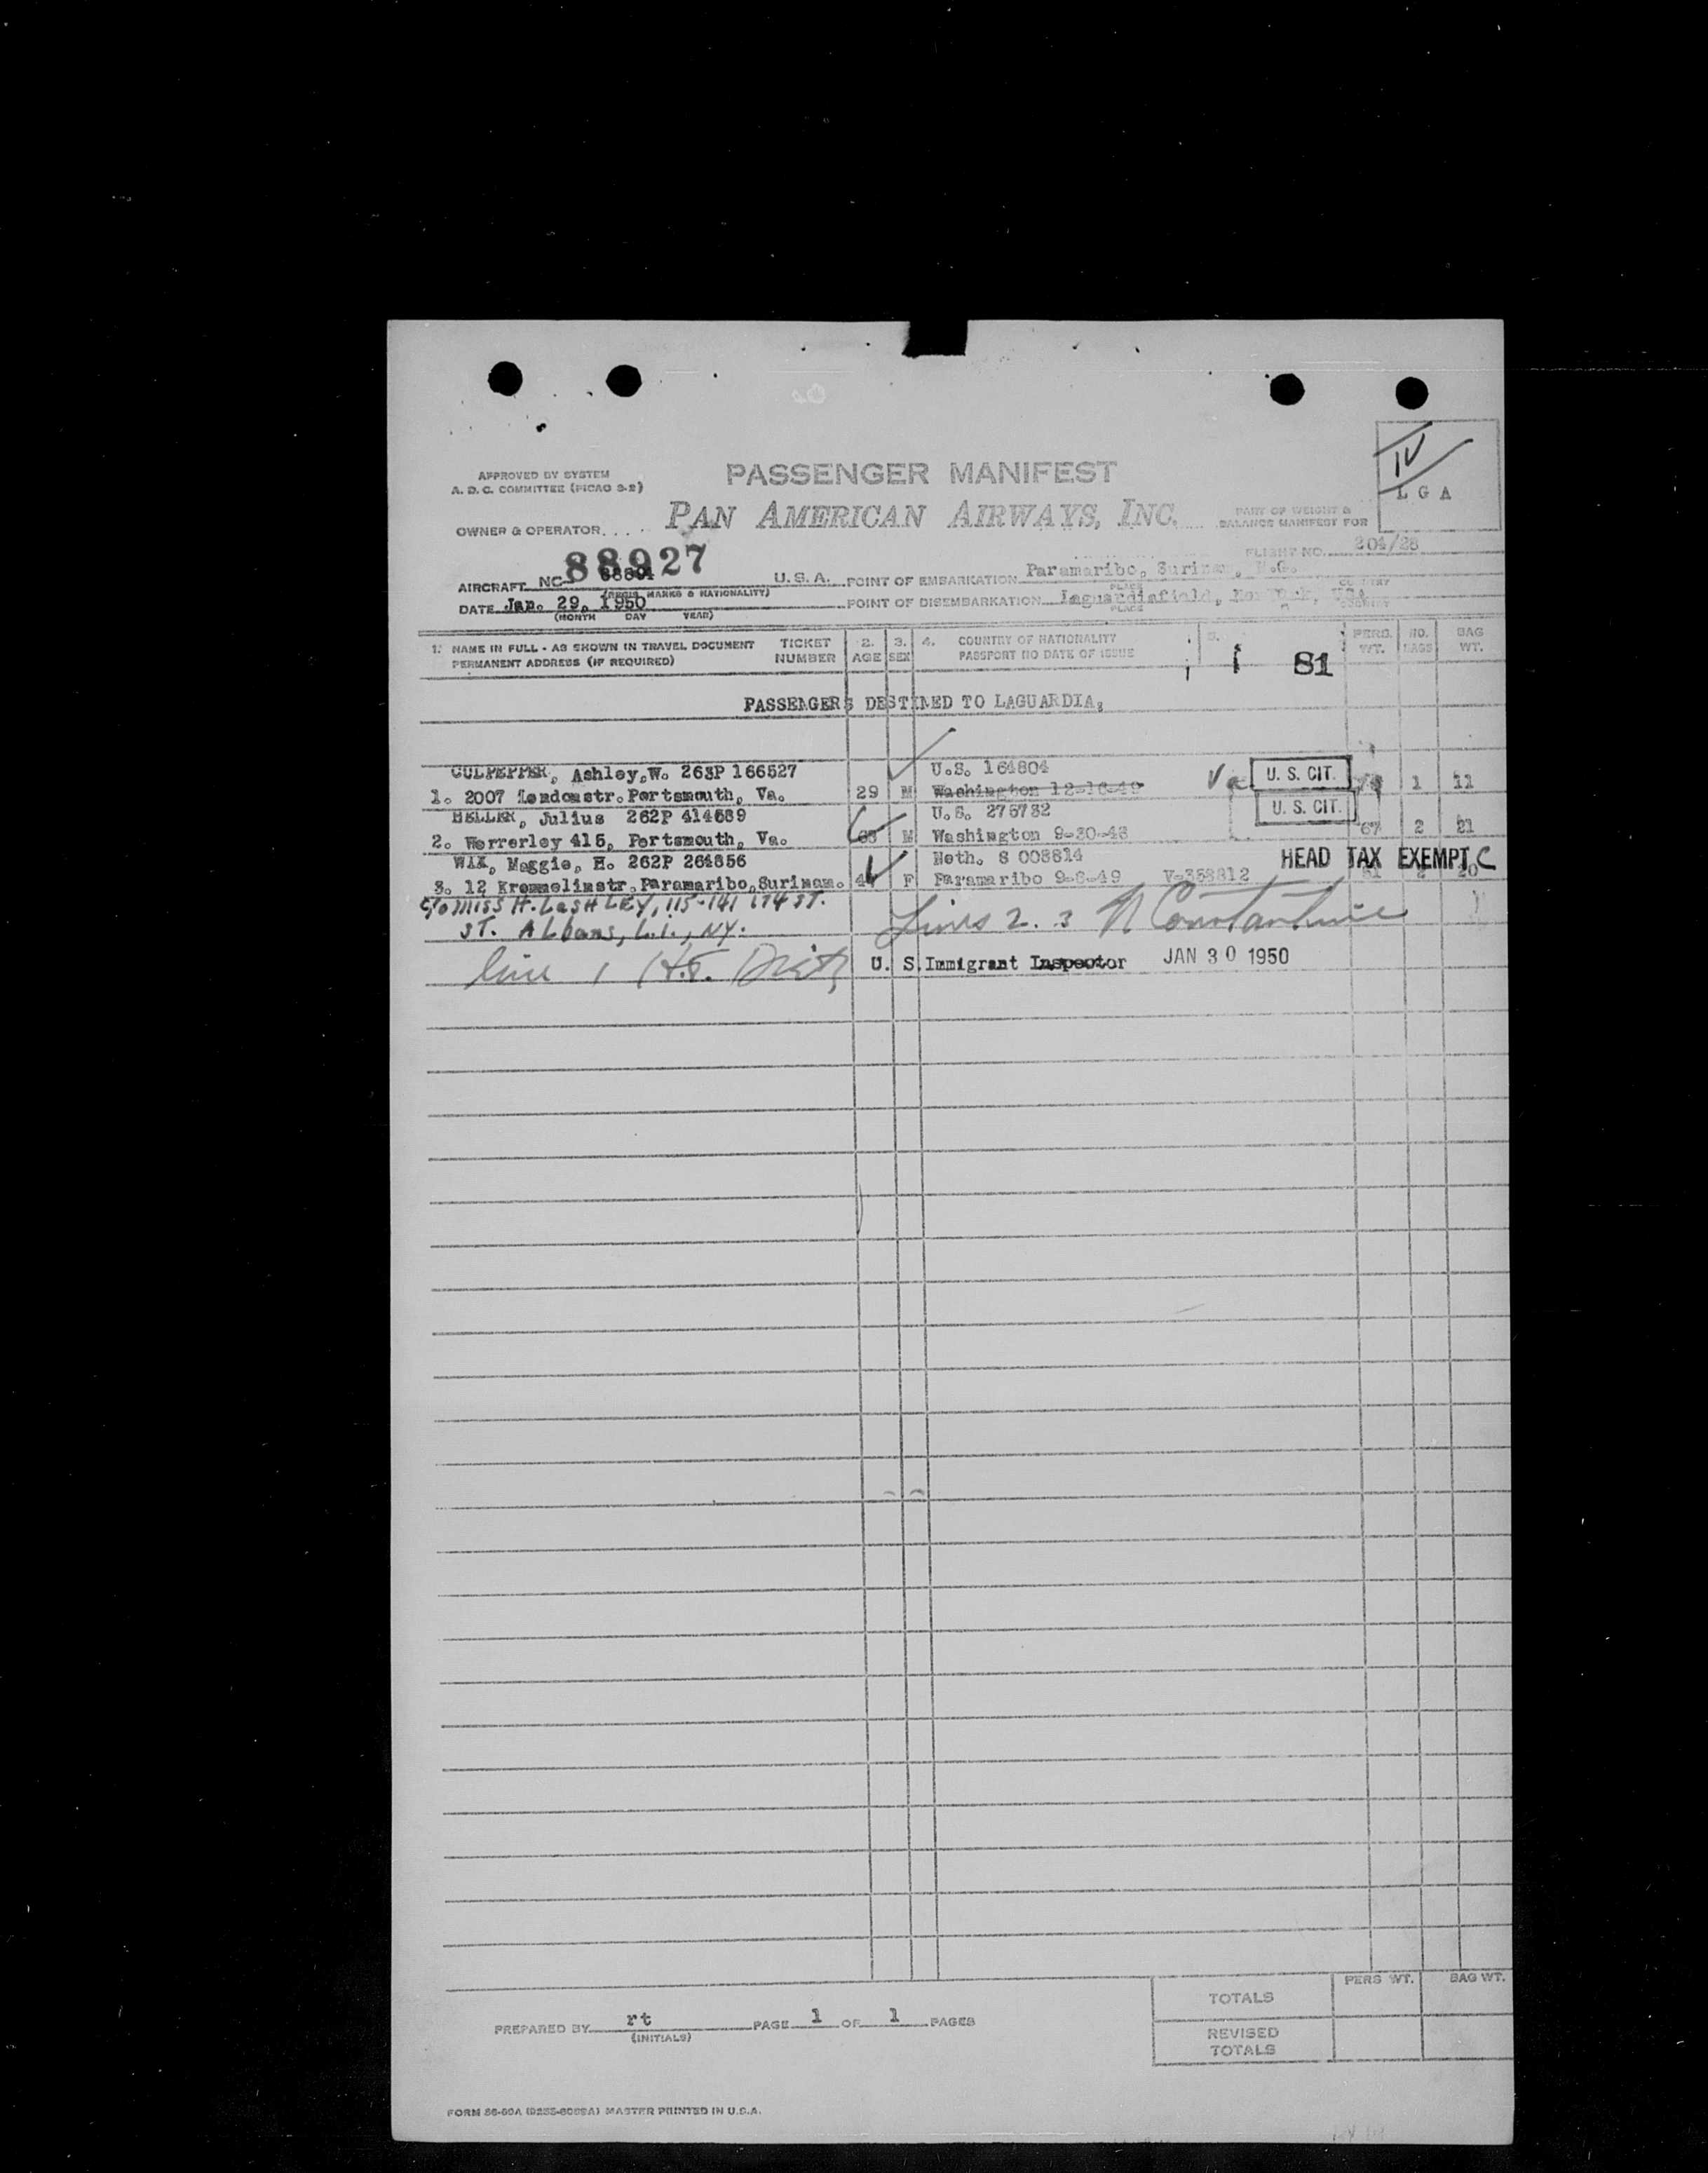 APPROVED BY SYSTEM
A. D. C. COMMITTEE (PICAO 9-2)
PASSENGER MANIFEST
IV
L G A
OWNER & OPERATOR. . . .
PAN AMERICAN AIRWAYS, INC.
PART OF WEIGHT &
BALANCE MANIFEST FOR
FLIGHT NO. 204/28
88927
AIRCRAFT NC U.S.A.
(REGIS. MARKS & NATIONALITY)
POINT OF EMBARKATION Paramaribo, Surinam, N.G.
PLACE COUNTRY
DATE Jan. 29, 1950
(MONTH DAY YEAR)
POINT OF DISEMBARKATION Laguardiafield, New York, USA
PLACE COUNTRY
1. NAME IN FULL - AS SHOWN IN TRAVEL DOCUMENT
PERMANENT ADDRESS (IF REQUIRED)
TICKET
NUMBER
2.
AGE
3.
SEX
4. COUNTRY OF NATIONALITY
PASSPORT NO DATE OF ISSUE
5.
81
PERS.
WT.
NO.
BAGS
BAG
WT.
PASSENGERS DESTINED TO LAGUARDIA,
CULPEPPER, Ashley,W. 263P 166527 U.S. 164804
1. 2007 Londonstr.Portsmouth, Va. 29 M Washington Va U. S. CIT. 1 11
HELLER, Julius 262P 414689 U.S. 275732 U. S. CIT.
2. Werrerley 415, Portsmouth, Va. M Washington 9-30-48 67 2 21
WAX, Maggie, H. 262P 264656 Neth. S 008814 HEAD TAX EXEMPT C
3. 12 Krommelinstr.Paramaribo,Surinam. F Paramaribo 9-8-49 V-358812 20
c/o MISS H. LASHLEY, 115-141 174 ST.
ST. ALbans, L.I., NY.
Lines 2. 3 N Constantine
line 1 H.F.
U. S. Immigrant Inspector JAN 30 1950
PERS WT. BAG WT.
TOTALS
REVISED
TOTALS
PREPARED BY rt PAGE 1 OF 1 PAGES
(INITIALS)
FORM MASTER PRINTED IN U.S.A.